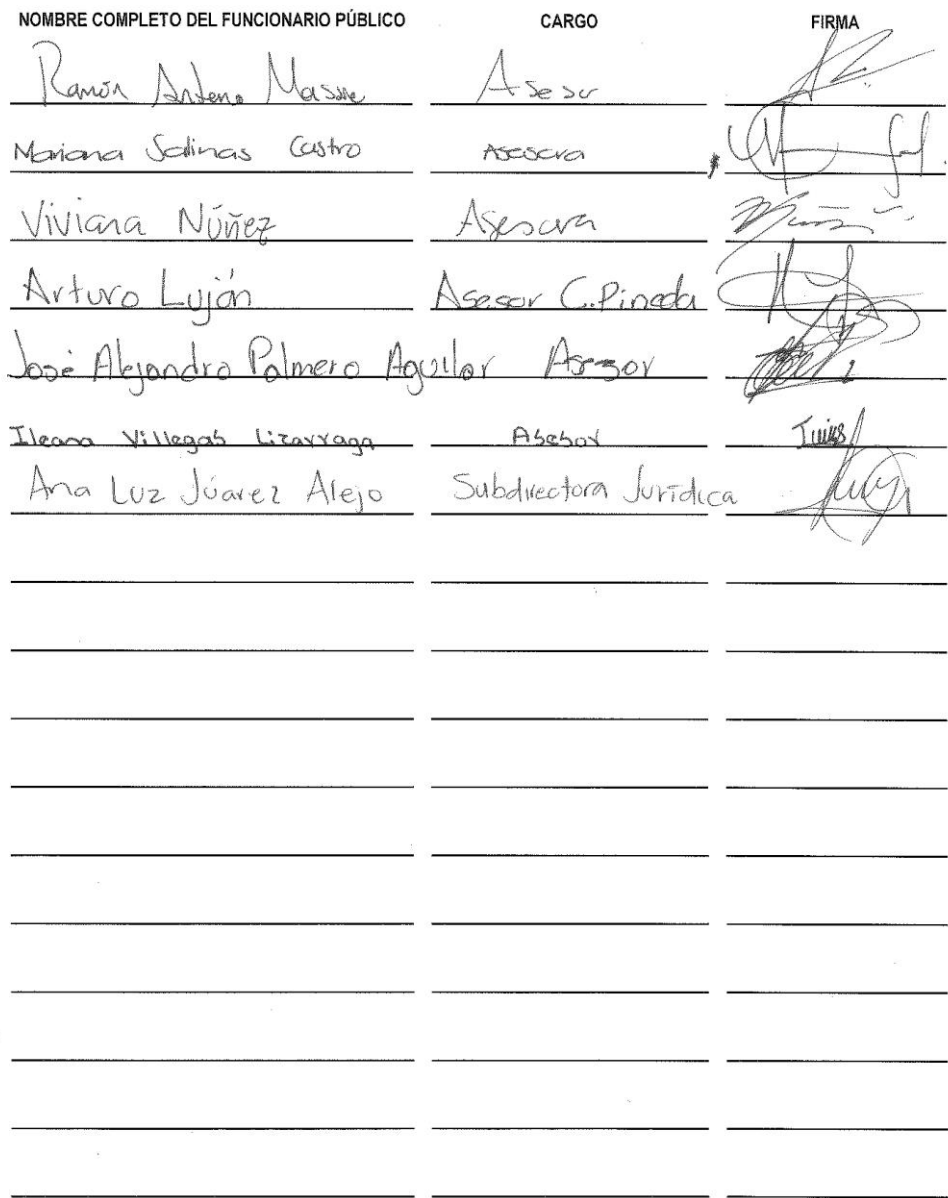 NOMBRE COMPLETO DEL FUNCIONARIO PÚBLICO CARGO FIRMA
Ramón Asesor
Mariana Salinas Castro Asesora
Viviana Núñez Asesora
Arturo Luján Asesor C. Pineda
José Alejandro Palmero Aguilar Asesor
Ileana Villegas Lizarraga Asesor
Ana Luz Júarez Alejo Subdirectora Jurídica